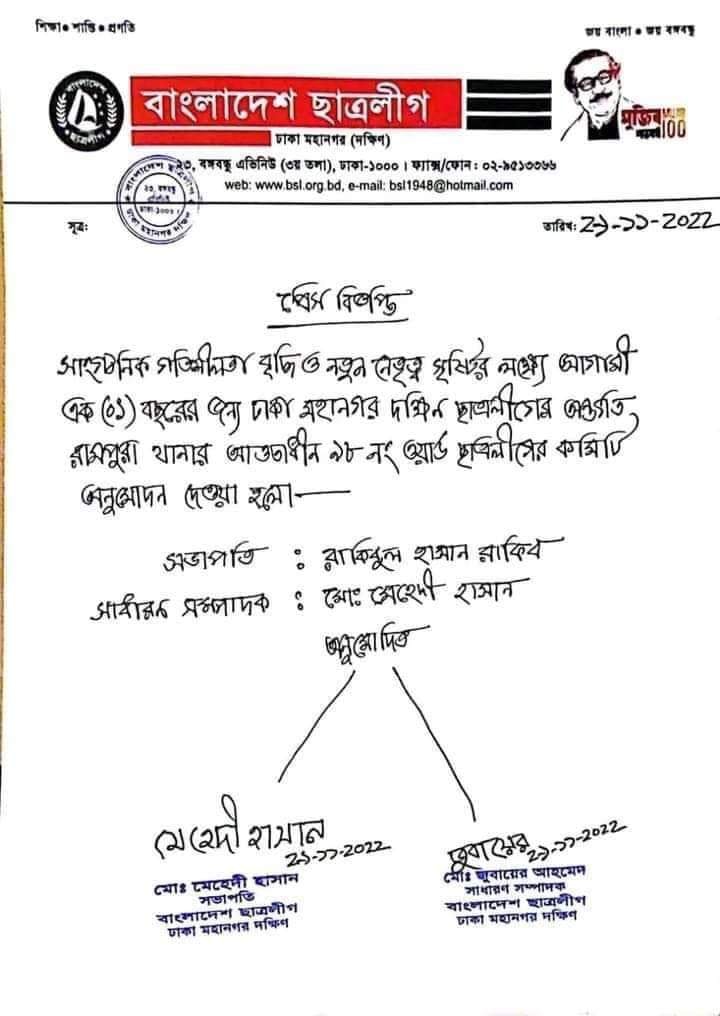 শিক্ষা● শান্তি● প্রগতি
জয় বাংলা ● জয় বঙ্গবন্ধু
বাংলাদেশ ছাত্রলীগ
ঢাকা মহানগর (দক্ষিণ)
মুজিব 100
২৩, বঙ্গবন্ধু এভিনিউ (৩য় তলা), ঢাকা-১০০০ । ফ্যাক্স/ফোন : ০২-৯৫১৩৩৬৬
web: www.bsl.org.bd, e-mail: bsl1948@hotmail.com
সূত্র:
তারিখ: 2১-১১-2022
প্রেস বিজ্ঞপ্তি
সাংগঠনিক গতিশীলতা বৃদ্ধি ও নতুন নেতৃত্ব সৃষ্টির লক্ষ্যে আগামী
এক (০১) বছরের জন্য ঢাকা মহানগর দক্ষিন ছাত্রলীগের অন্তর্গত,
রামপুরা থানার আওতাধীন ৯৮ নং ওয়ার্ড ছাত্রলীগের কমিটি
অনুমোদন দেওয়া হলো—
সভাপতি : রাকিবুল হাসান রাকিব
সাধারন সম্পাদক : মোঃ মেহেদী হাসান
অনুমোদিত
মেহেদী হাসান
2১-১১-2022
মোঃ মেহেদী হাসান
সভাপতি
বাংলাদেশ ছাত্রলীগ
ঢাকা মহানগর দক্ষিণ
জুবায়ের
2১-১১-2022
মোঃ জুবায়ের আহমেদ
সাধারণ সম্পাদক
বাংলাদেশ ছাত্রলীগ
ঢাকা মহানগর দক্ষিণ